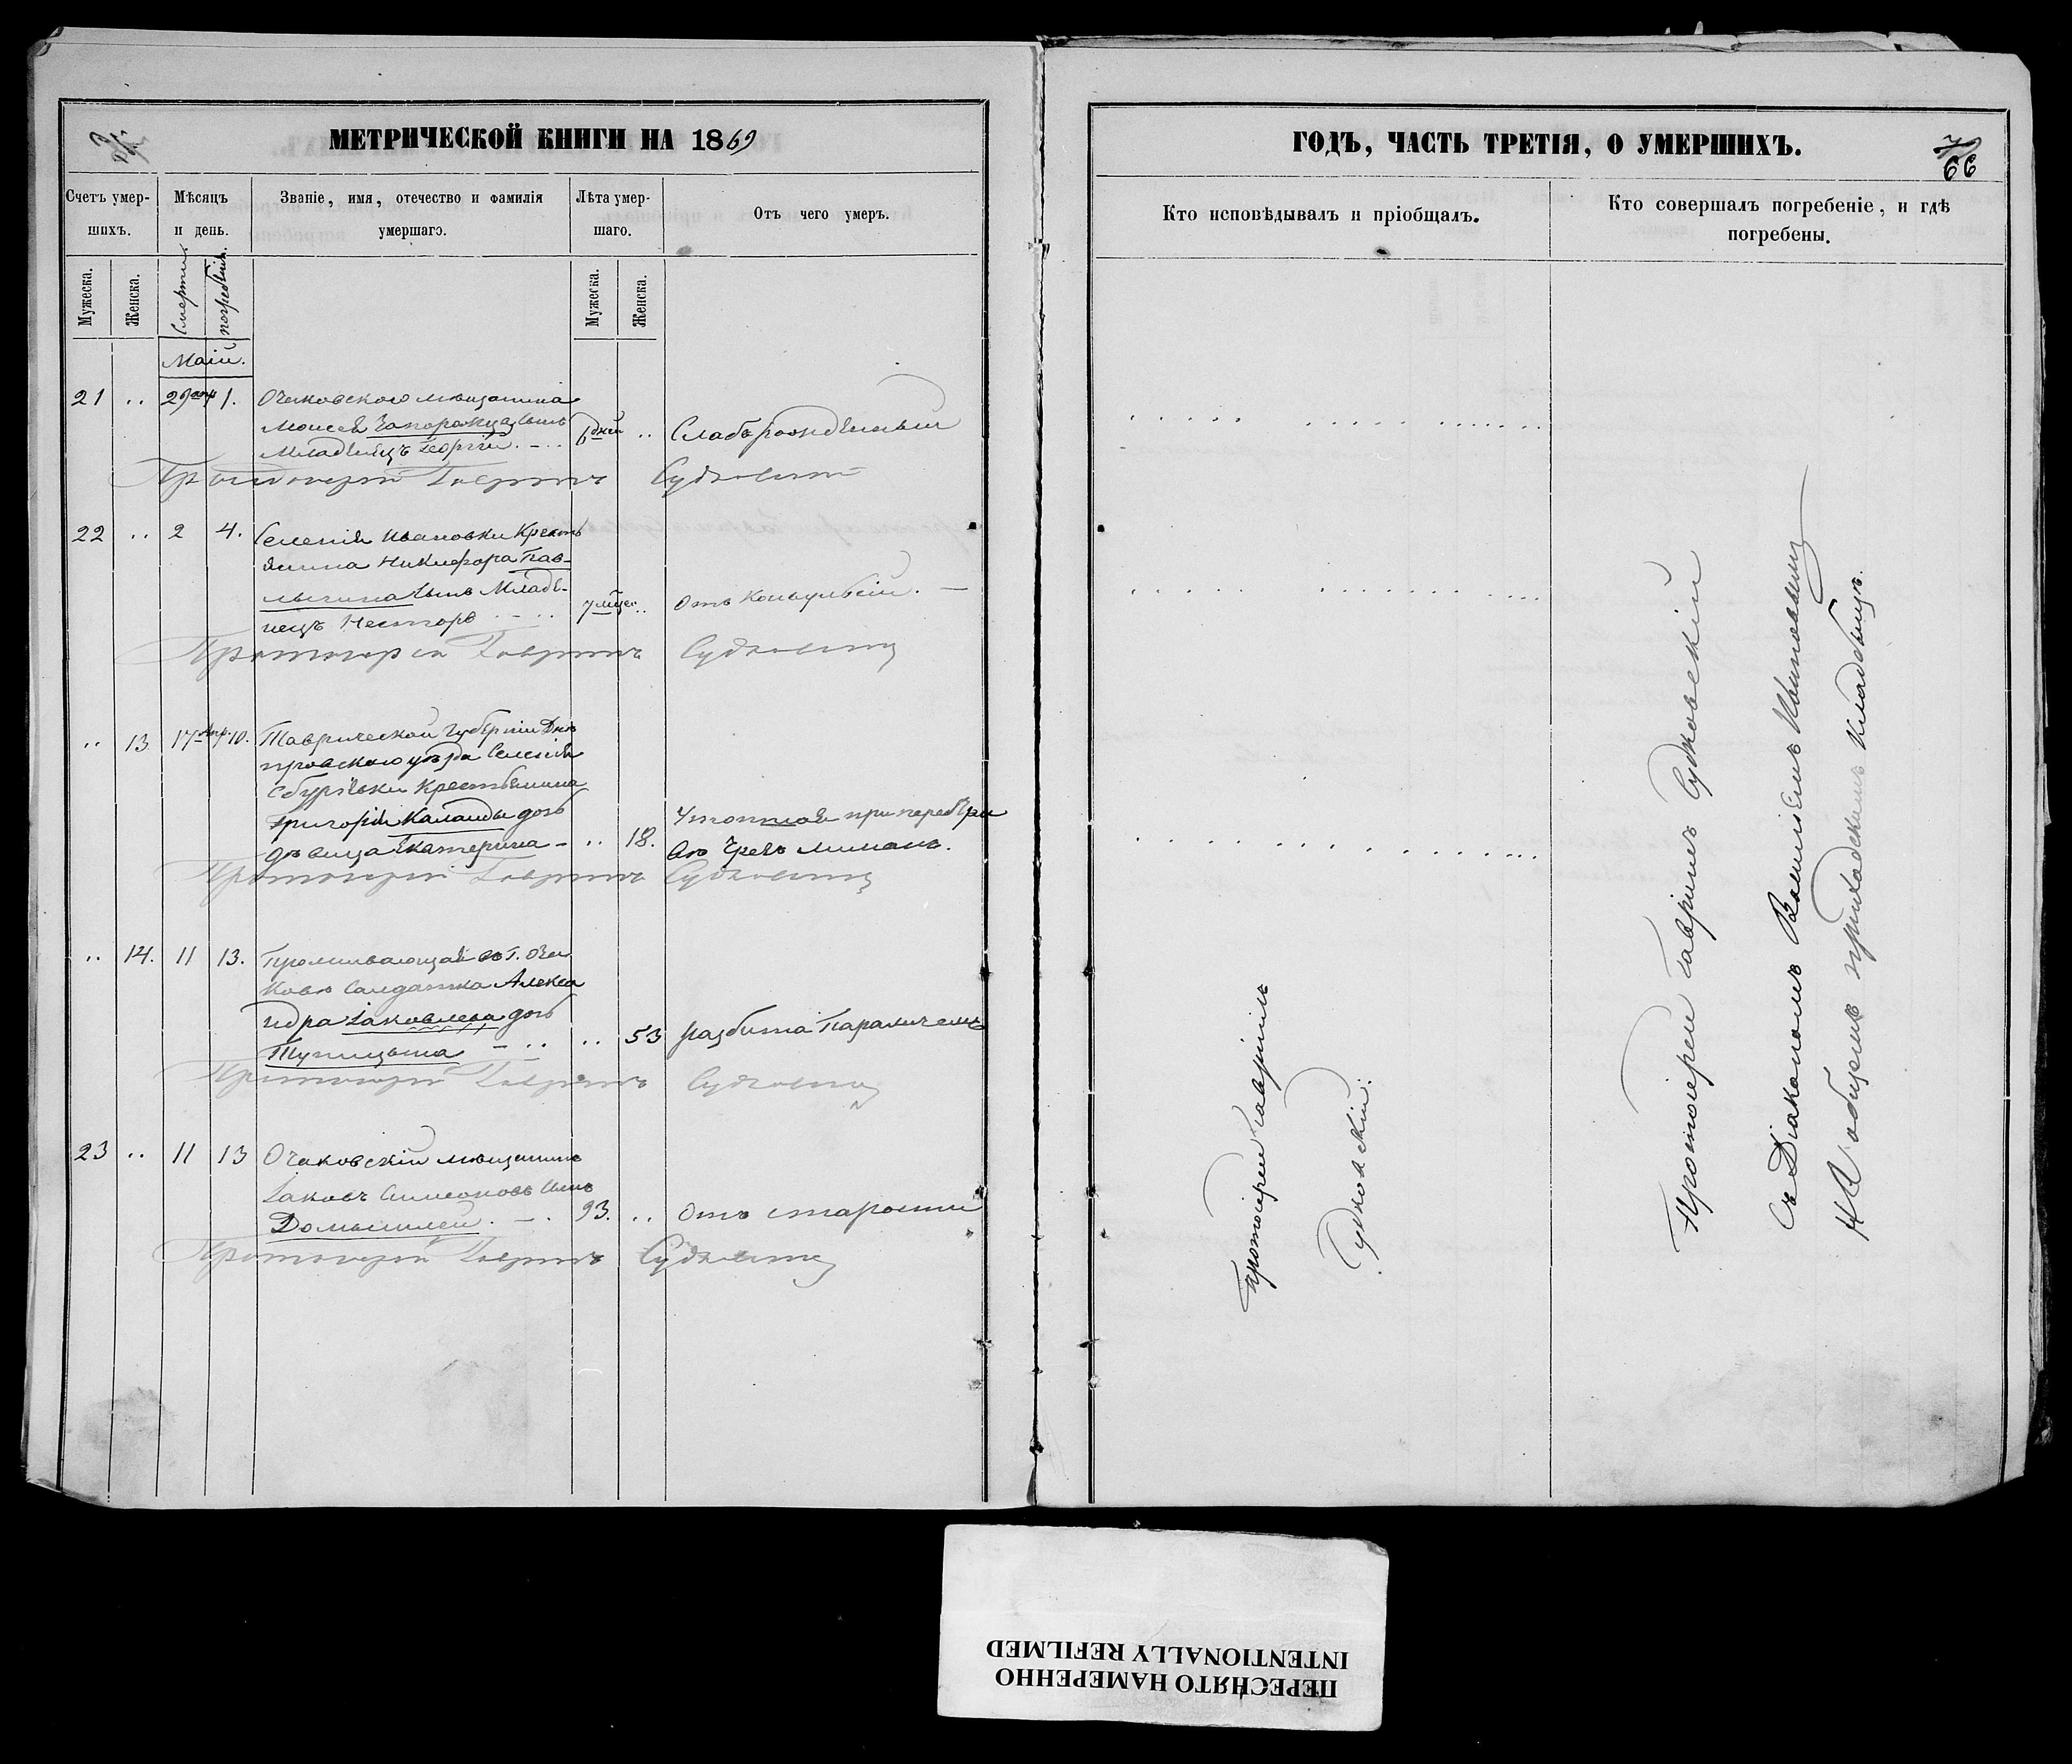 МЕТРИЧЕСКОЙ КНИГИ НА 1869
Счетъ умер-
шихъ.
Мѣсяцъ
и день.
Званіе, имя, отечество и фамилія
умершаго.
Лѣта умер-
шаго.
Отъ чего умеръ.
Мужеска.
Женска.
Смерти.
погребенія.
Мужеска.
Женска.
Маій.
21 .. 29 апр 1. Очаковского мѣщанина
Моисея Запорожца сынъ
Младенецъ Георгій. 6 дней .. Слабърожденный
Протоіерей Гавріилъ Судковскій
22 .. 2 4. Селенія Ивановки Кресть
янина Никифора Пав-
лычина сынъ Младе-
нецъ Несторъ 7 мѣсе. .. Отъ Конвульсій.
Протоіерей Гавріилъ Судковскій
.. 13 17 Апр. 10. Таврической Губерніи Днѣ
провского уѣзда Селенія
Збурьевки Крестьянина
Григорія Каланды дочь
дѣвица Екатерина .. 18. Утопшая при переѣзди
въ Чрезъ лиманъ.
Протоіерей Гавріилъ Судковскій
.. 14. 11 13. Проживающая въ Г. Оча
ковѣ Салдатка Алекса
ндра Іаковлева дочь
Тупицына .. 53 Разбита Параличемъ
Протоіерей Гавріилъ Судковскій
23 .. 11 13 Очаковскій мѣщанинъ
Іаковъ Симеоновъ сынъ
93. .. Отъ старости
Протоіерей Гавріилъ Судковскій
ГОДЪ, ЧАСТЬ ТРЕТІЯ, О УМЕРШИХЪ.
66
Кто исповѣдывалъ и пріобщалъ.
Кто совершалъ погребеніе, и гдѣ
погребены.
Протоіерей Гавріилъ
Судковскій.
Протоіерей Гавріилъ Судковскій
съ Діакономъ Василіемъ
На общемъ приходскомъ кладбищѣ.
ПЕРЕСНЯТО НАМЕРЕННО
INTENTIONALLY REFILMED